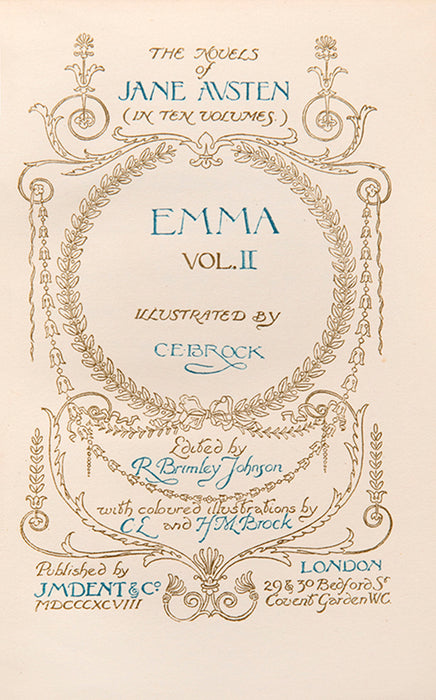 THE NOVELS
of
JANE AVSTEN
(IN TEN VOLUMES.)
EMMA
VOL. II
ILLUSTRATED BY
C.E. BROCK
Edited by
R. Brimley Johnson
with coloured illustrations by
C E and H M Brock
Published by
J.M DENT & Co.
MDCCCXCVIII
LONDON
29 & 30 Bedford St
Covent Garden W.C.